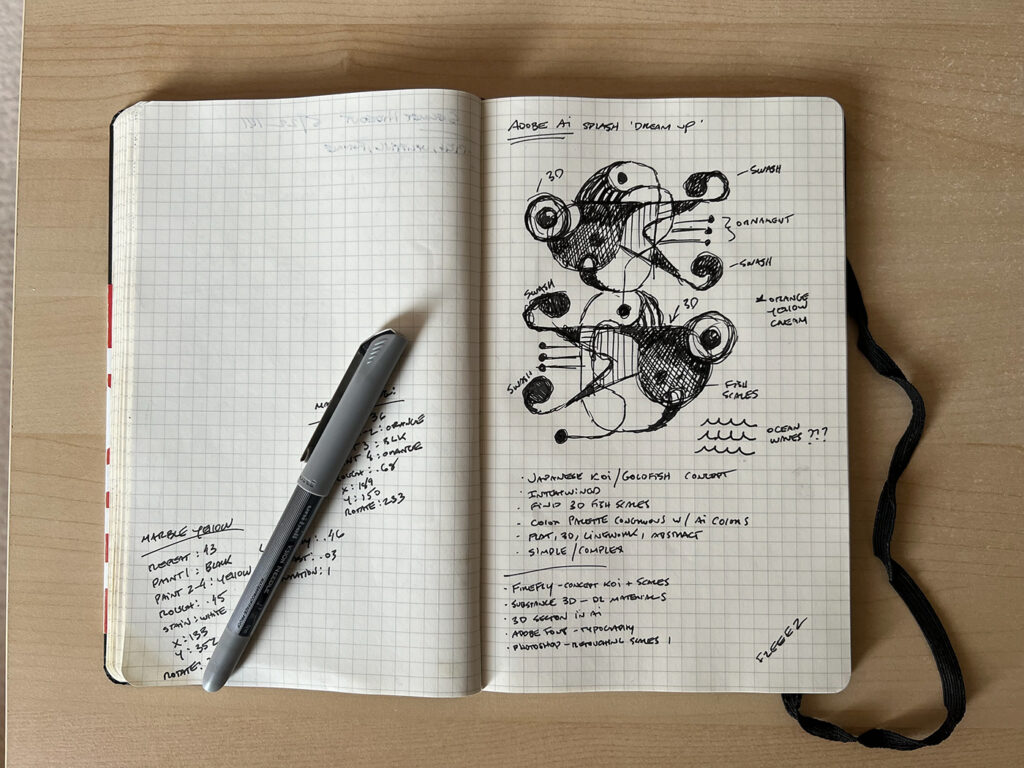 MARBLE YELLOW
REPEAT: 43
PAINT 1: BLACK
PAINT 2-4: YELLOW
ROUGH: .45
STAIN: WHITE
X: 133
Y: 352
ROTATE:
36
: ORANGE
3: BLK
4: ORANGE
ROUGH: .68
X: 189
Y: 150
ROTATE: 233
: .46
: .03
: 1
ADOBE Ai SPLASH 'DREAM UP'
3D
SWASH
ORNAMENT
SWASH
SWASH
3D
ORANGE
YELLOW
CREAM
SWASH
FISH
SCALES
OCEAN
WAVES ???
· JAPANESE KOI/GOLDFISH CONCEPT
· INTERTWINED
· FIND 3D FISH SCALES
· COLOR PALETTE CONGRUOUS W/ Ai COLORS
· FLAT, 3D, LINEWORK, ABSTRACT
· SIMPLE/COMPLEX
· FIREFLY - CONCEPT KOI + SCALES
· SUBSTANCE 3D - DL MATERIALS
· 3D SECTION IN Ai
· ADOBE FONT - TYPOGRAPHY
· PHOTOSHOP - RETOUCHING SCALES